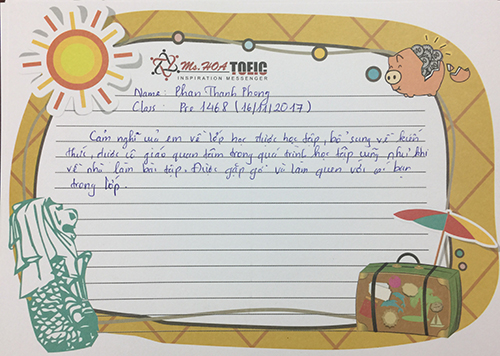 Ms.HOA TOEIC
INSPIRATION MESSENGER
Name: Phan Thanh Phong
Class: Pre 1468 (16/11/2017)
Cảm nghĩ của em về lớp học được học tập, bổ sung về kiến
thức, được cô giáo quan tâm trong quá trình học tập cũng như khi
về nhà làm bài tập. Được gặp gỡ và làm quen với các bạn
trong lớp.